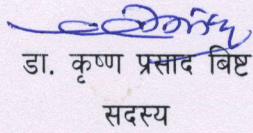 डा. कृष्ण प्रसाद बिष्ट
सदस्य